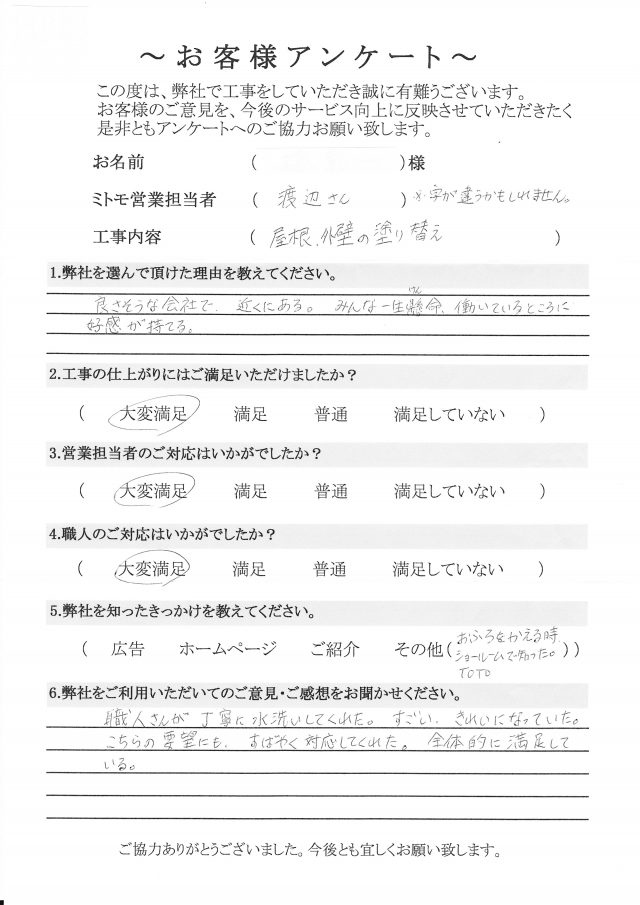 ～お客様アンケート～
この度は、弊社で工事をしていただき誠に有難うございます。
お客様のご意見を、今後のサービス向上に反映させていただきたく
是非ともアンケートへのご協力お願い致します。
お名前 ( )様
ミトモ営業担当者 ( 渡辺さん ) ※字が違うかもしれません。
工事内容 ( 屋根、外壁の塗り替え )
1.弊社を選んで頂けた理由を教えてください。
良さそうな会社で、近くにある。みんな一生懸命、働いているところに
けん
好感が持てる。
2.工事の仕上がりにはご満足いただけましたか？
( 大変満足 満足 普通 満足していない )
3.営業担当者のご対応はいかがでしたか？
( 大変満足 満足 普通 満足していない )
4.職人のご対応はいかがでしたか？
( 大変満足 満足 普通 満足していない )
5.弊社を知ったきっかけを教えてください。
( 広告 ホームページ ご紹介 その他( おふろをかえる時、
ショールームで知った。 ))
TOTO
6.弊社をご利用いただいてのご意見・ご感想をお聞かせください。
職人さんが丁寧に水洗いしてくれた。すごい、きれいになっていた。
こちらの要望にも、すばやく対応してくれた。全体的に満足して
いる。
ご協力ありがとうございました。今後とも宜しくお願い致します。